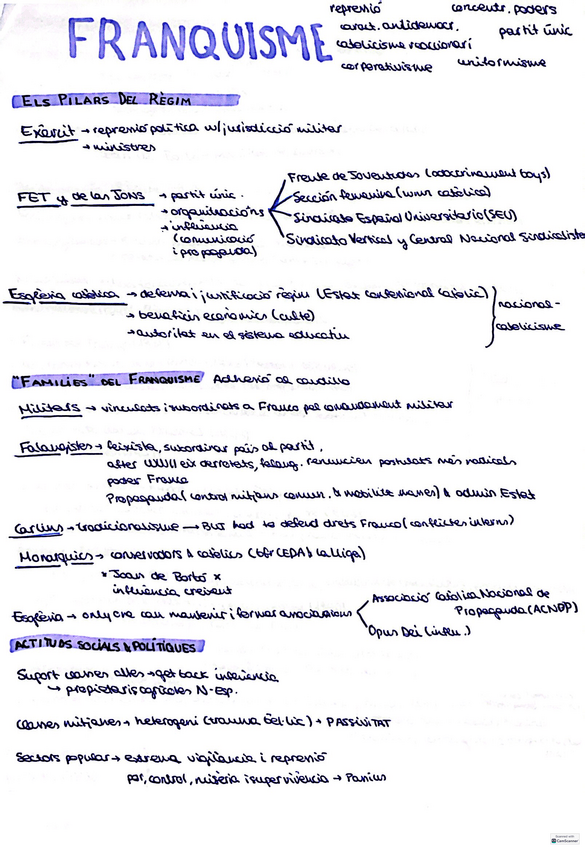 FRANQUISME
repressió concentr. poders
caract. antidemocr. partit únic
catolicisme reaccionari
corporativisme uniformisme
ELS PILARS DEL RÈGIM
Exèrcit → repressió política w/ jurisdicció militar
→ ministres
FET y de las JONS → partit únic.
→ organitzacions
→ influència
(comunicació
i propaganda)
Frente de Joventudes (adoctrinament boys)
Sección femenina (wmn catòlica)
Sindicato Español Universitario (SEU)
Sindicato Vertical y Central Nacional Sindicalista
Església catòlica → defensa i justificació règim (Estat confessional catòlic)
→ beneficis econòmics (culte)
→ autoritat en el sistema educatiu
nacional-
catolicisme
"FAMÍLIES" DEL FRANQUISME Adhesió al caudillo
Militars → vinculats i subordinats a Franco pel comandament militar
Falangistes → feixista, subordinar país al partit,
after WWII eix derrotats, falang. renuncien postulats més radicals
poder Franco
Propaganda (control mitjans comun. & mobilitz masses) & admin Estat
Carlins → tradicionalisme → BUT had to defend drets Franco (conflictes interns)
Monàrquics → conservadors & catòlics (bfr CEDA & la Lliga)
* Joan de Borbó x
influència creixent
Església → only one can mantenir i formar associacions
Associació Catòlica Nacional de
Propaganda (ACNDP)
Opus Dei (influ.)
ACTITUDS SOCIALS & POLÍTIQUES
Suport classes altes → get back influència
↳ propietaris agrícoles N-Esp.
classes mitjanes → heterogeni (trauma bèl·lic) → PASSIVITAT
Sectors popular → extrema vigilància i repressió
por, control, misèria i supervivència → Passius
Scanned with
CamScanner